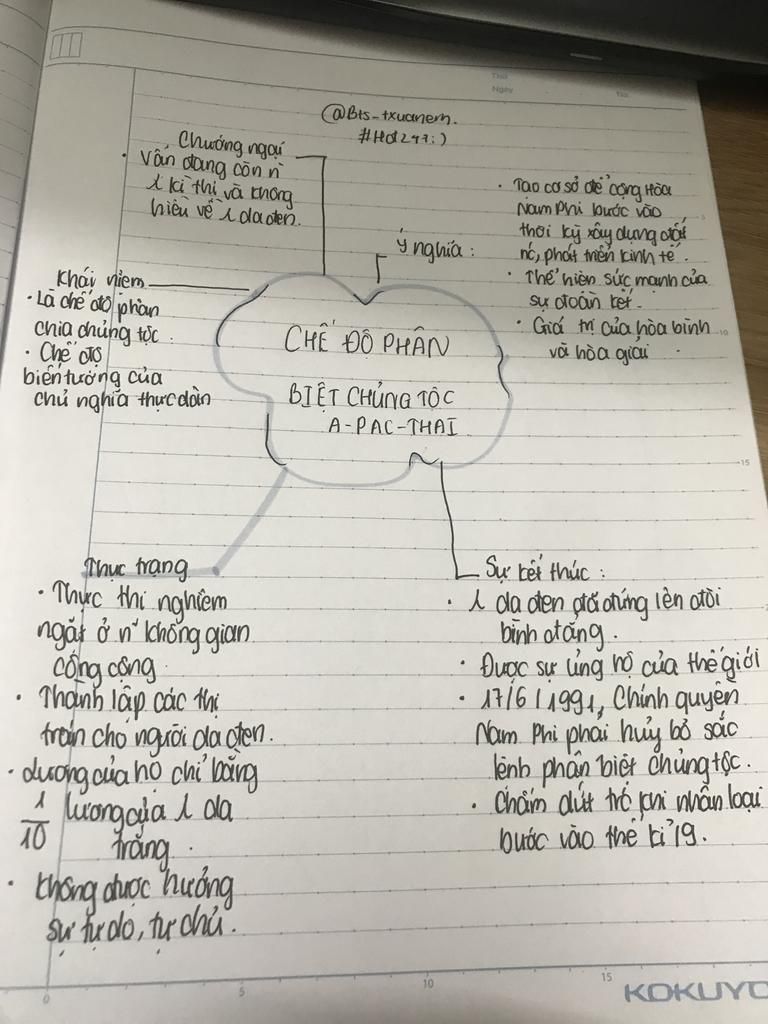 Thứ
Ngày
No.
@Bts-txuanem.
#Hd247:)
Chướng ngại
• Vẫn đang còn n`
λ kì thị và không
hiểu về λ da đen.
Ý nghĩa :
• Tạo cơ sở để cộng Hòa
Nam Phi bước vào
thời kỳ xây dựng đất
nc, phát triển kinh tế.
• Thể hiện sức mạnh của
sự đoàn kết.
• Giá trị của hòa bình
và hòa giải.
Khái niệm
• Là chế độ phân
chia chủng tộc.
• Chế độ
biến tướng của
chủ nghĩa thực dân
CHẾ ĐỘ PHÂN
BIỆT CHỦNG TỘC
A-PAC-THAI
Thực trạng
• Thực thi nghiêm
ngặt ở n` không gian
công cộng
• Thành lập các thị
trấn cho người da đen.
• lương của họ chỉ bằng
1/10 lương của λ da
trắng.
• không được hưởng
sự tự do, tự chủ.
Sự kết thúc :
• λ da đen đã đứng lên đòi
bình đẳng.
• Được sự ủng hộ của thế giới
• 17/6/1991, Chính quyền
Nam Phi phải hủy bỏ sắc
lệnh phân biệt chủng tộc.
• Chấm dứt trc khi nhân loại
bước vào thế kỉ 19.
5
10
15
0
5
10
15
KOKUYO